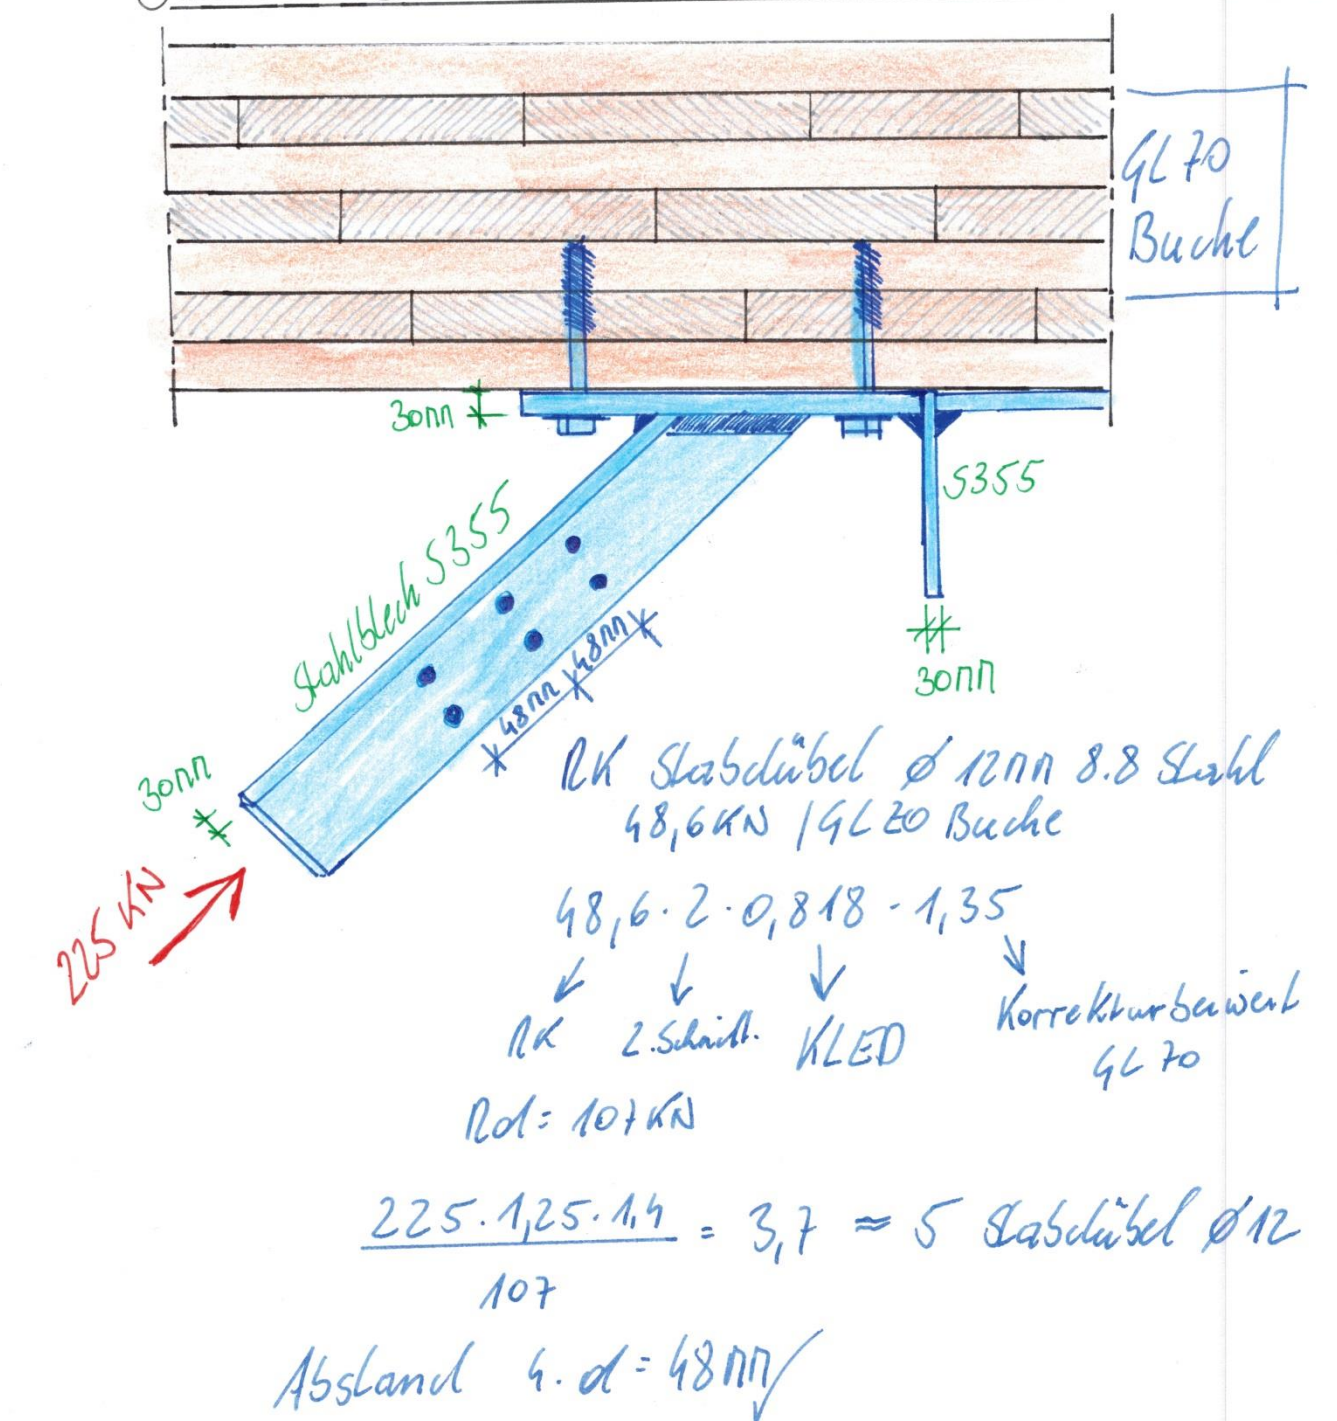 GL 70
Buche
30mm
S355
Stahlblech S355
48mm
48mm
30mm
30mm
225 KN
RK Stabdübel ø 12mm 8.8 Stahl
48,6 KN / GL 70 Buche
48,6 · 2 · 0,818 · 1,35
RK 2.Schnitt. KLED Korrekturbeiwert
GL 70
Rd = 107 KN
225 · 1,25 · 1,4 = 3,7 ≈ 5 Stabdübel ø 12
107
Abstand 4 · d = 48mm ✓